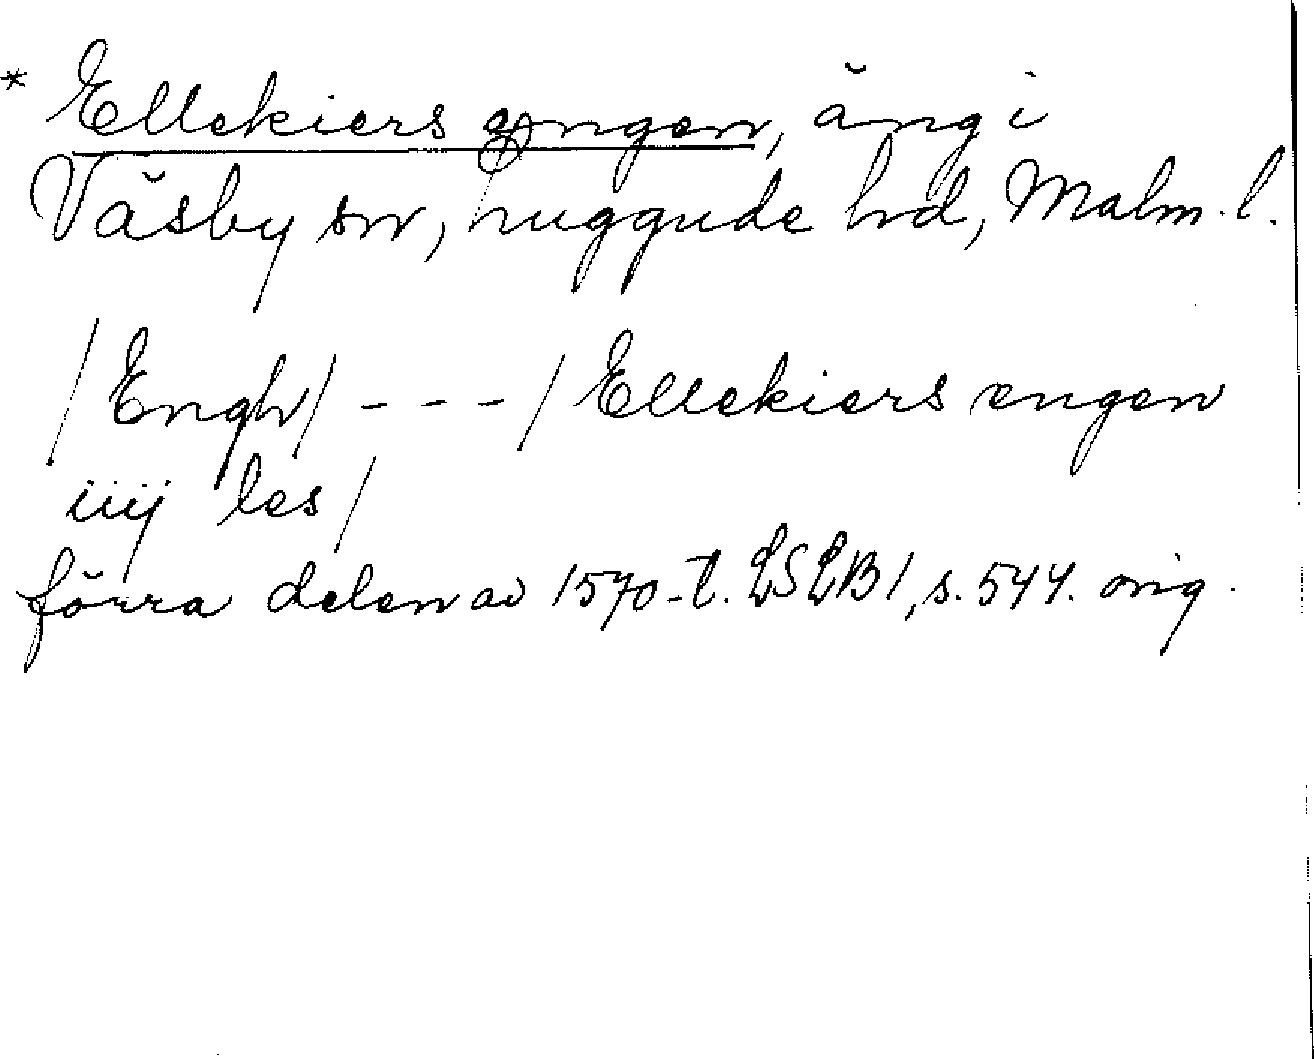 * Ellekiers engen, äng i
Väsby sn, Luggude hd, Malm. l.
/Engh/ - - - / Ellekiers engen
iiij les/
förra delen av 1570-t. LSLB 1, s. 544. orig.